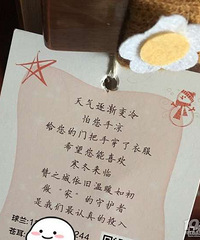 天气逐渐变冷
怕您手凉
给您的门把手穿了衣服
希望您能喜欢
寒冬来临
赞之城依旧温暖如初
做“家”的守护者
是我们最认真的投入
球兰:1
苍耳
244